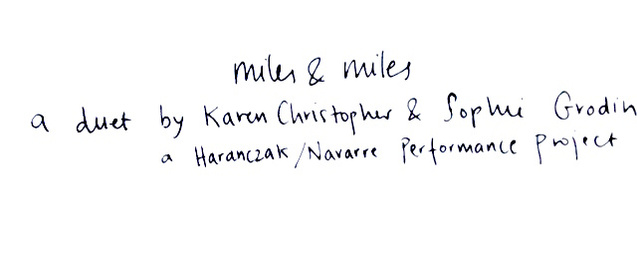 miles & miles
a duet by Karen Christopher & Sophie Grodin
a Haranczak/Navarre Performance Project